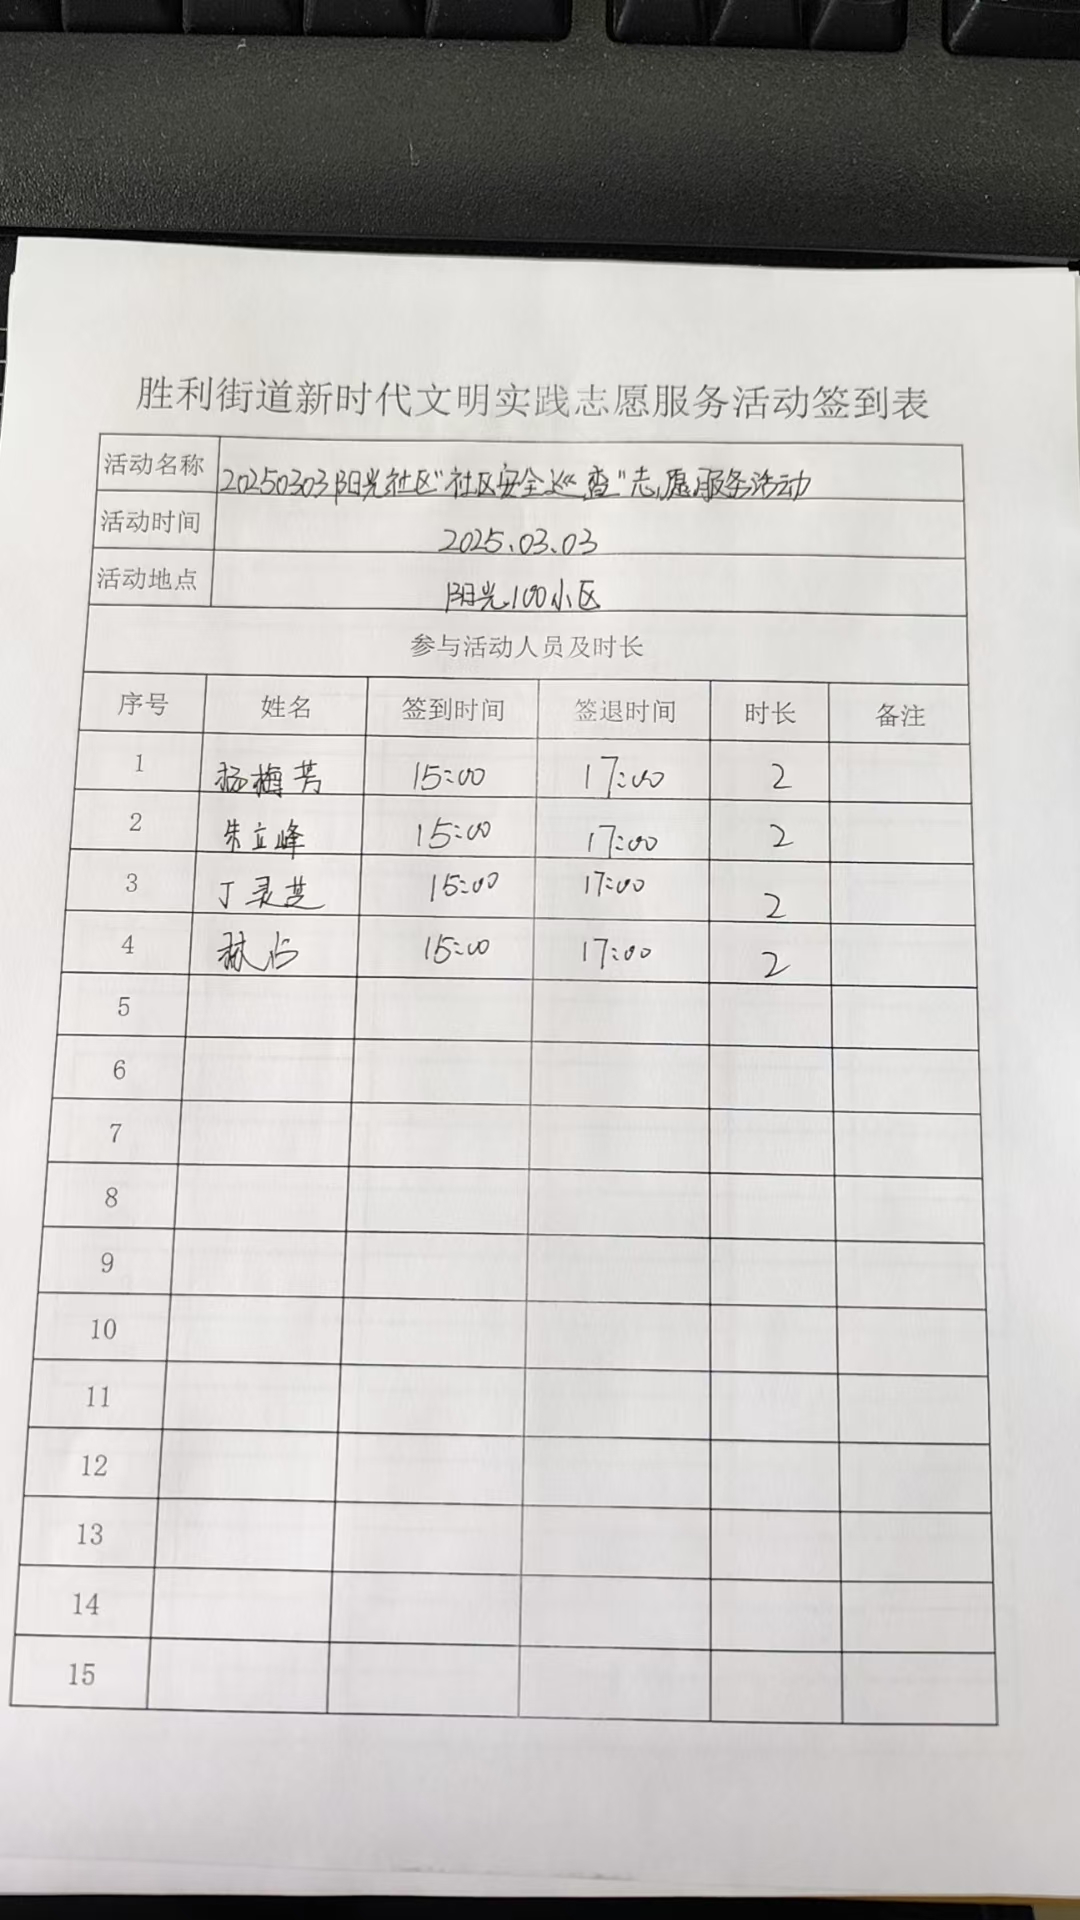 胜利街道新时代文明实践志愿服务活动签到表
活动名称 20250303阳光社区"社区安全巡查"志愿服务活动
活动时间 2025.03.03
活动地点 阳光100小区
参与活动人员及时长
序号 姓名 签到时间 签退时间 时长 备注
1 杨梅芳 15:00 17:00 2
2 朱立峰 15:00 17:00 2
3 丁灵芝 15:00 17:00 2
4 15:00 17:00 2
5
6
7
8
9
10
11
12
13
14
15